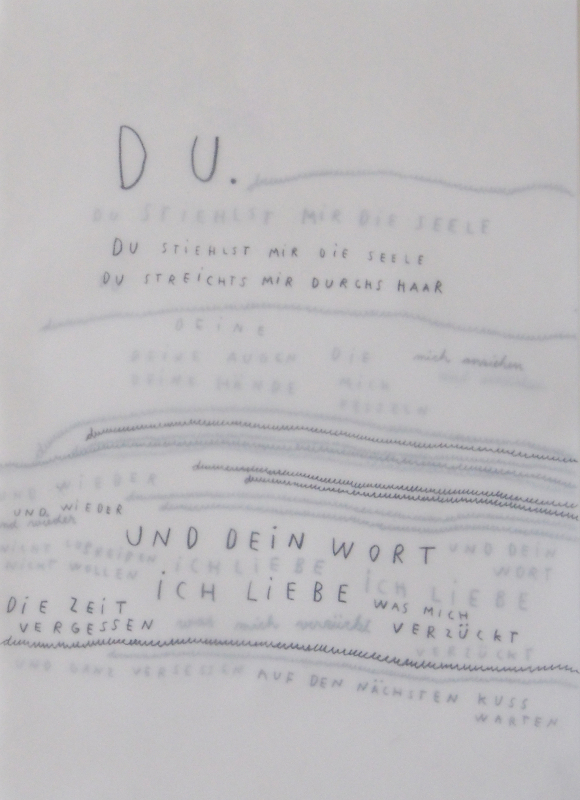 DU.
DU STIEHLST MIR DIE SEELE
DU STIEHLST MIR DIE SEELE
DU STREICHTS MIR DURCHS HAAR
DEINE
DEINE AUGEN DIE mich anziehen
DEINE HÄNDE MICH
UND WIEDER
UND WIEDER
und wieder
UND DEIN WORT UND DEIN
NICHT ICH LIEBE WORT
NICHT WOLLEN ICH LIEBE ICH LIEBE
DIE ZEIT WAS MICH
VERGESSEN was mich verzückt VERZÜCKT
VERZÜCKT
UND GANZ VERGESSEN AUF DEN NÄCHSTEN KUSS
WARTEN